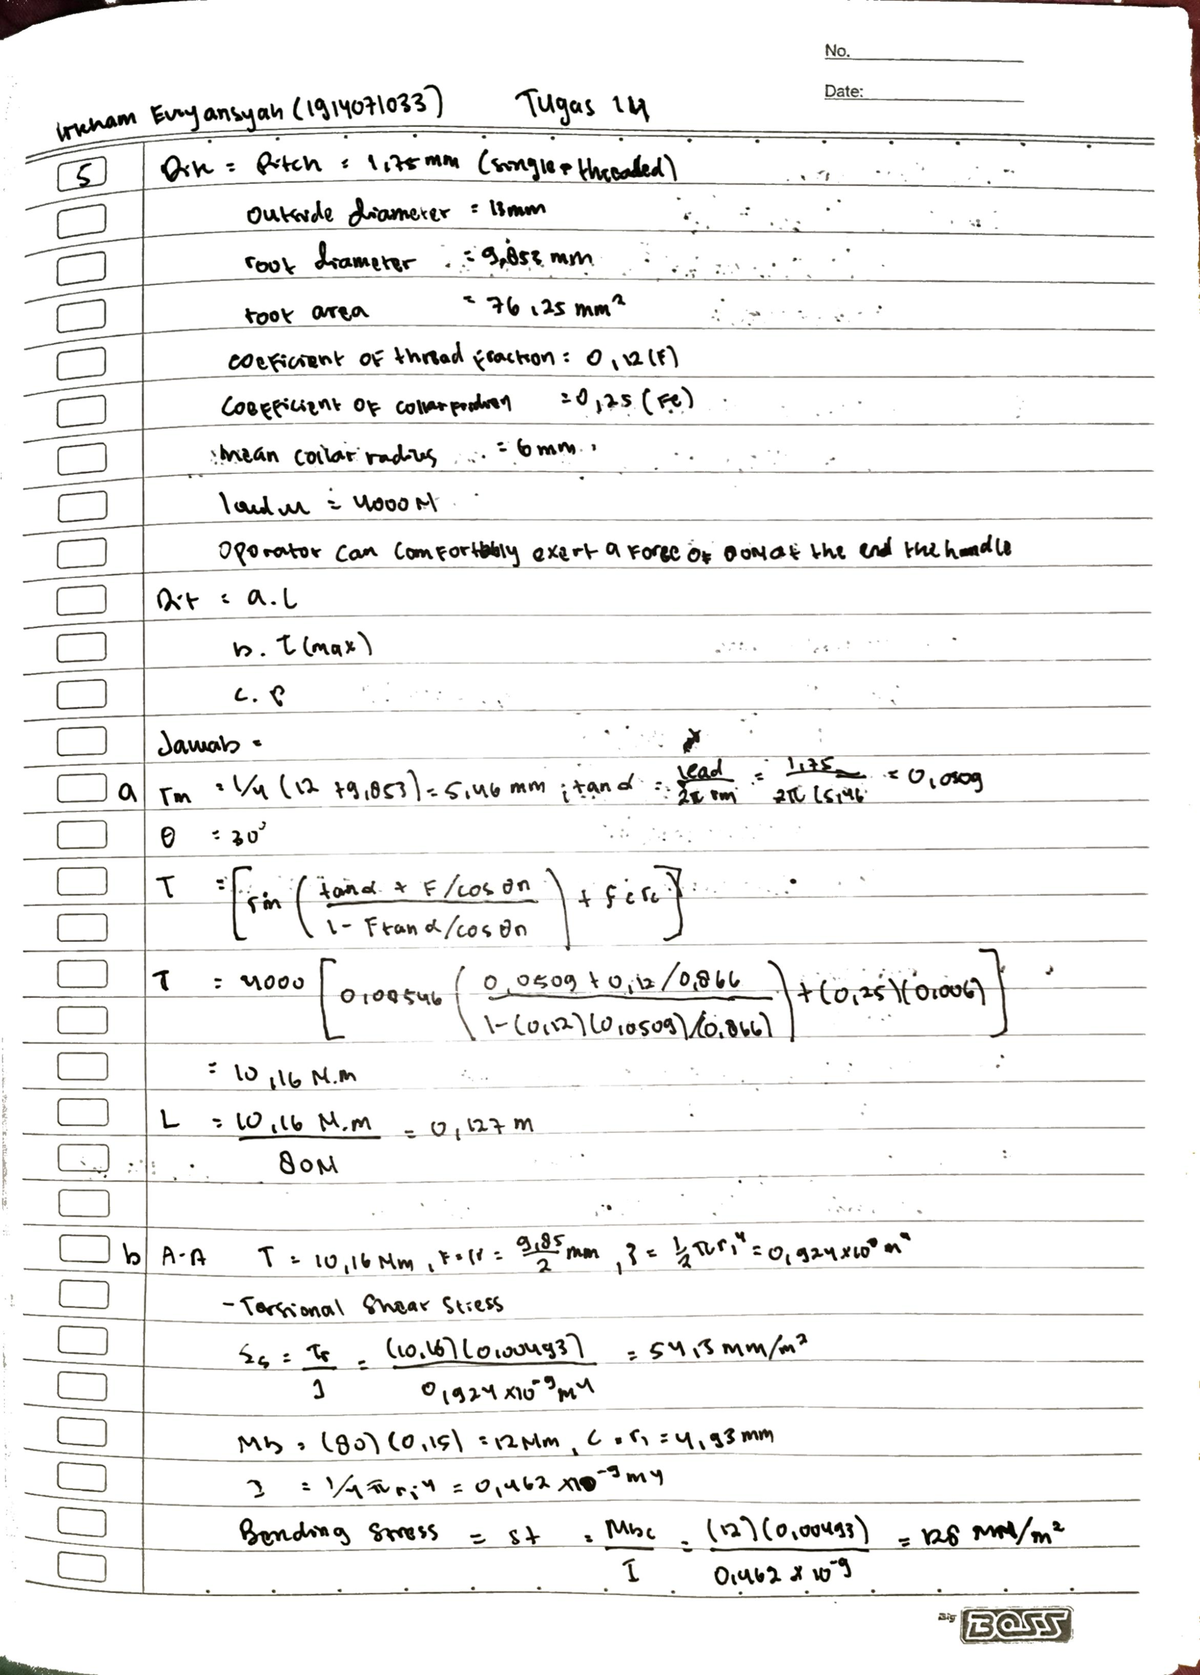 No.
Date:
Irkham Evryansyah (1914071033) Tugas 14
5 Dik = Pitch = 1,75 mm (single threaded)
outside diameter = 13mm
root diameter = 9,853 mm
root area = 76,25 mm²
coeficient of thread fraction = 0,12 (F)
Coefficient of collar = 0,25 (Fc)
mean collar radius = 6 mm
load w = 4000 N
Operator can comfortbbly exert a force of 80N at the end the handle
Dit = a. L
b. τ (max)
c. P
Jawab =
a rm = 1/4 (12 + 9,853) = 5,46 mm ; tan α = lead / 2π rm = 1,75 / 2π (5,46 = 0,0509
θ = 30°
T = [rm (tan α + F/cos θn / 1 - F tan α/cos θn) + fc rc]
T = 4000 [0,00546 (0,0509 + 0,12/0,866 / 1-(0,12)(0,0509)/(0,866)) + (0,25)(0,006)]
= 10,16 N.m
L = 10,16 N.m / 80N = 0,127 m
b A-A T = 10,16 Nm, r = r1 = 9,85/2 mm, J = 1/2 π r1⁴ = 0,924 x 10⁹ m⁴
- Torsional Shear Stress
Ss = Tr / J = (10,16)(0,00493) / 0,924 x10⁻⁹ m4 = 54,3 mm/m²
Mb = (80)(0,15) = 12 Nm, c = r1 = 4,93 mm
I = 1/4 π r1⁴ = 0,462 x10⁻⁹ m4
Bending Stress = st = Mbc / I = (12)(0,00493) / 0,462 x 10⁻⁹ = 128 MN/m²
Big BOSS